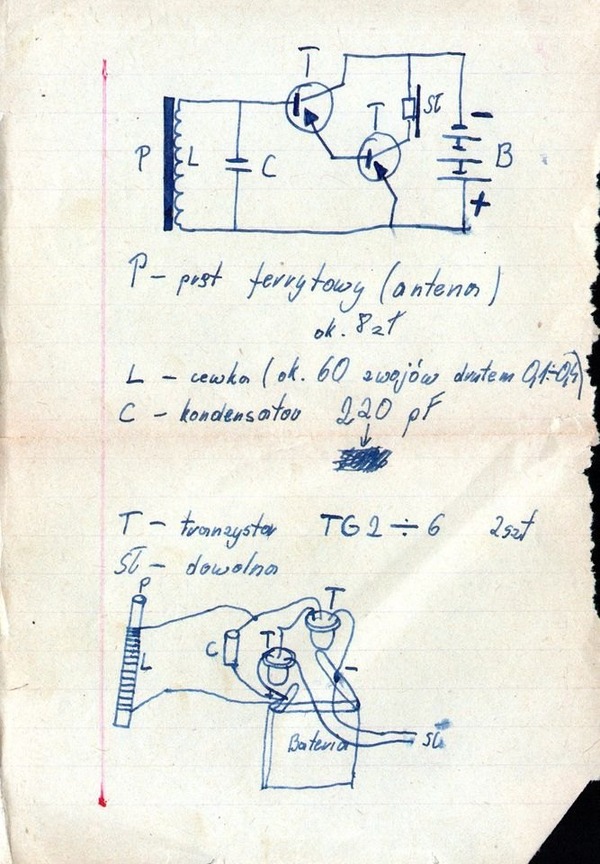 T
T
SŁ
P L C B
-
+
P - pręt ferrytowy (antena)
ok. 8 zł
L - cewka (ok. 60 zwojów drutem 0,1÷0,4)
C - kondensator 220 pF
T - tranzystor TG2 ÷ 6 2szt
SŁ - dowolna
P
T
T
C
L
-
Bateria
SŁ